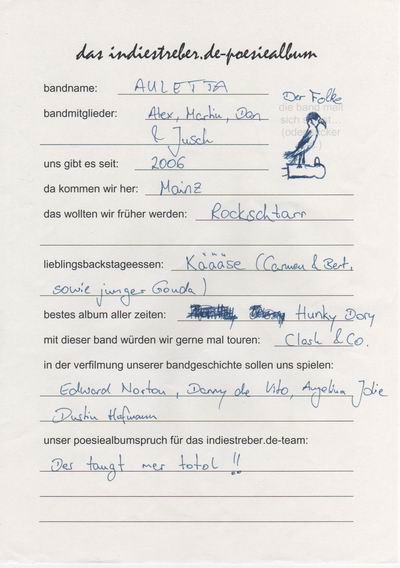 das indiestreber.de-poesiealbum
bandname: AULETTA
Der Folke
die band malt
bandmitglieder: Alex, Martin, Dan
& Jusch
uns gibt es seit: 2006
da kommen wir her: Mainz
das wollten wir früher werden: Rockschtarr
lieblingsbackstageessen: Käääse (Carmen & Bert,
sowie junger Gouda)
bestes album aller zeiten: Hunky Dory
mit dieser band würden wir gerne mal touren: Clash & Co.
in der verfilmung unserer bandgeschichte sollen uns spielen:
Edward Norton, Danny de Vito, Angelina Jolie
Dustin Hofmann
unser poesiealbumspruch für das indiestreber.de-team:
Des taugt mer total !!